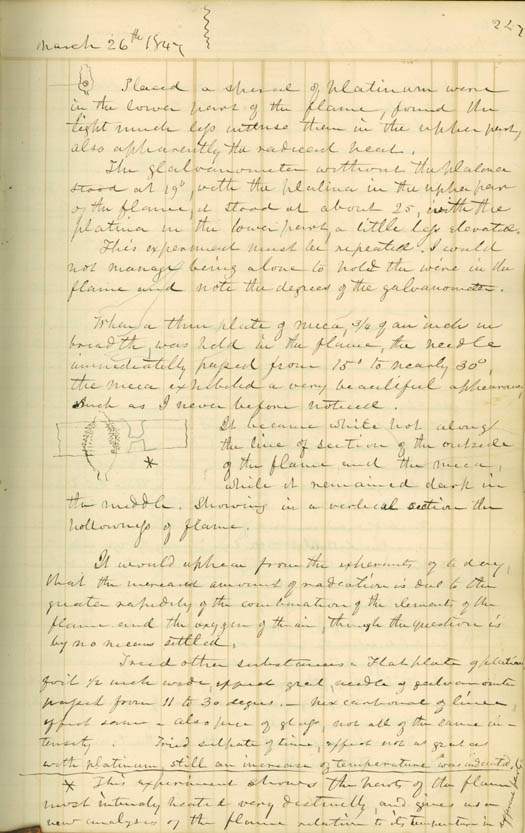 March 26th 1847
227
Placed a spiral of platinum wire
in the lower part of the flame, found the
light much less intense than in the upper part,
also apparently the radient heat.
The galvanometer without the platina
stood at 19°, with the platina in the upper part
of the flame, it stood at about 25, with the
platina in the lower part, a little less elevated.
This experiment must be repeated. I could
not manage being alone to hold the wire in the
flame and note the degrees of the galvanometer.
When a thin plate of mica, 3/4 of an inch in
breadth, was held in the flame, the needle
immediatelly passed from 15° to nearly 30°,
the mica exhibited a very beautiful appearance
such as I never before noticed.
It became white hot along
the line of section of the outside
of the flame and the mica,
while it remained dark in
the middle. Showing in a vertical section the
hollowness of flame.
It would appear from the experiments of to day,
that the increased amount of radiation is due to the
greater rapidity of the combination of the elements of the
flame and the oxygen of the air, though the question is
by no means settled.
Tried other substances a flat plate of platina
foil 1/2 inch wide, effect great, needle of galvanometer
passed from 11 to 30 degrees. - carbonat of lime,
effect same - also piece of glass, not all of the same in-
tensity. Tried sulphate of lime, effect not as great as
with platinum, still an increase of temperature was indicated.
* This experiment shows the parts of the flame
most intensly heated very distinctly and gives us a
new analysis of the flame relative to its temperature in
*